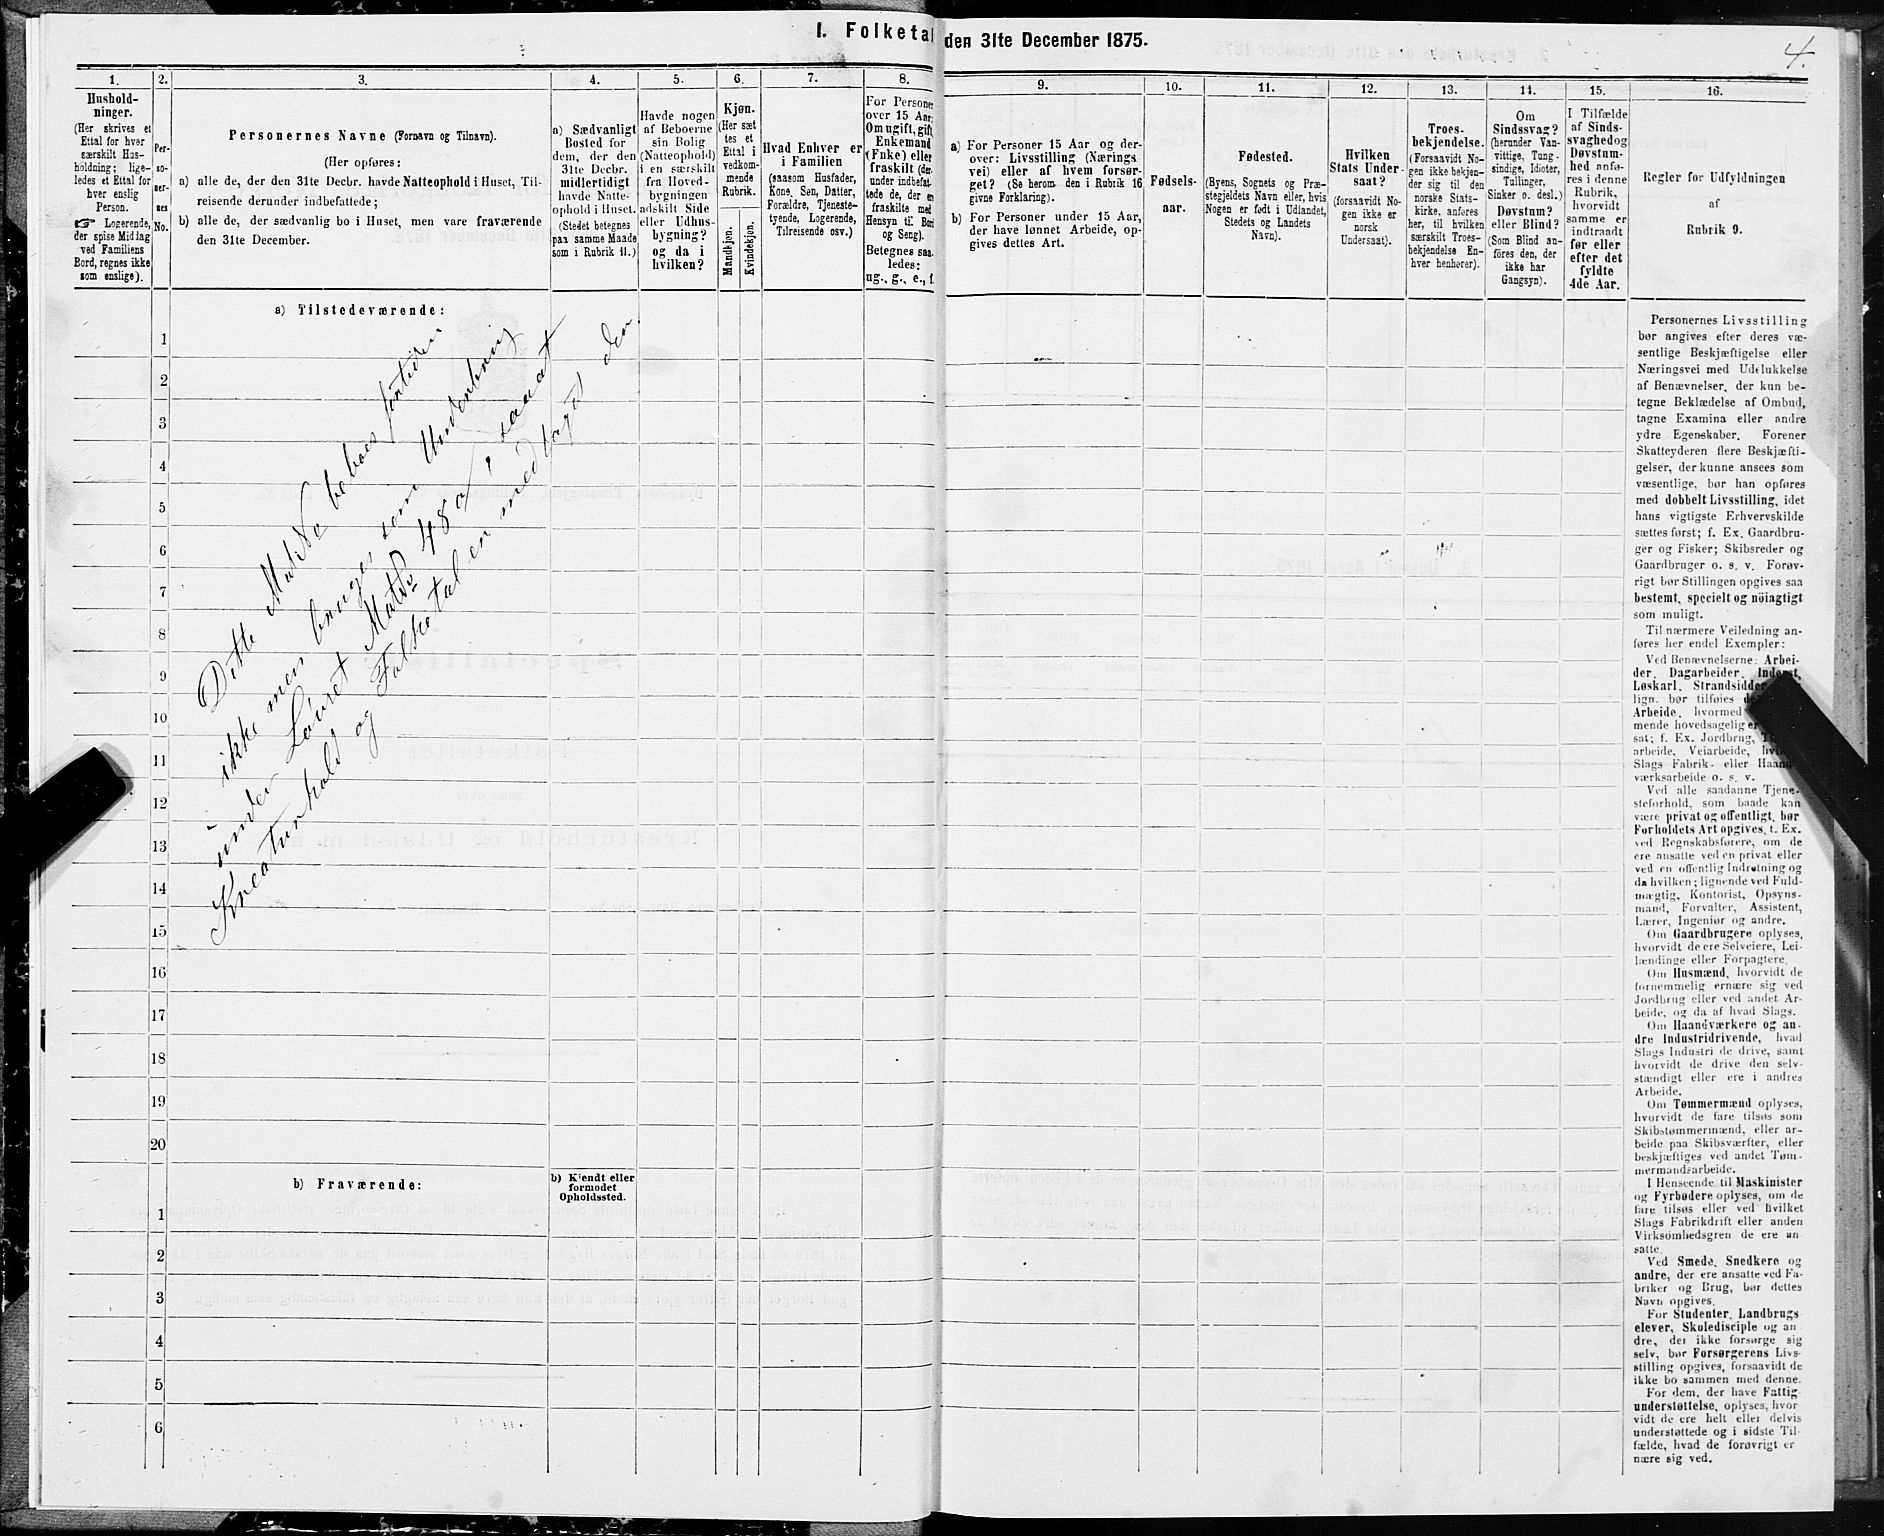 I. Folketal den 31te December 1875.
4.
1.
Hushold-
ninger.
(Her skrives et
Ettal for hver
særskilt Hus-
holdning; lige-
ledes et Ettal for
hver enslig
Person.
☞ Logerende,
der spise Middag
ved Familiens
Bord, regnes ikke
som enslige).
2.
Per-
so-
ner-
nes
No.
3.
Personernes Navne (Fornavn og Tilnavn).
(Her opføres:
a) alle de, der den 31te Decbr. havde Natteophold i Huset, Til-
reisende derunder indbefattede;
b) alle de, der sædvanlig bo i Huset, men vare fraværende
den 31te December.
4.
a) Sædvanligt
Bosted for
dem, der den
31te Decbr.
midlertidigt
havde Natte-
ophold i Huset.
(Stedet betegnes
paa samme Maade
som i Rubrik 11.)
5.
Havde nogen
af Beboerne
sin Bolig
(Natteophold)
i en særskilt
fra Hoved-
bygningen
adskilt Side
eller Udhus-
bygning?
og da i
hvilken?
6.
Kjøn.
(Her sæt
tes et
Ettal i
vedkom-
mende
Rubrik.
Mandkjøn.
Kvindekjøn.
7.
Hvad Enhver er
i Familien
(saasom Husfader,
Kone, Søn, Datter,
Forældre, Tjeneste-
tyende, Logerende,
Tilreisende osv.)
8.
For Personer
over 15 Aar:
Om ugift, gift,
Enkemand
(Enke) eller
fraskilt (der-
under indbefat-
tede de, der er
fraskilte med
Hensyn til Bord
og Seng).
Betegnes saa-
ledes:
ug., g., e., f.
9.
a) For Personer 15 Aar og der-
over: Livsstilling (Nærings
vei) eller af hvem forsør-
get? (Se herom den i Rubrik 16
givne Forklaring).
b) For Personer under 15 Aar,
der have lønnet Arbeide, op-
gives dettes Art.
10.
Fødsels-
aar.
11.
Fødested.
(Byens, Sognets og Præ-
stegjeldets Navn eller, hvis
Nogen er født i Udlandet,
Stedets og Landets
Navn).
12.
Hvilken
Stats Under-
saat?
(forsaavidt No-
gen ikke er
norsk
Undersaat).
13.
Troes-
bekjendelse.
(Forsaavidt No-
gen ikke bekjen-
der sig til den
norske Stats-
kirke, anføres
her, til hvilken
særskilt Troes-
bekjendelse En-
hver henhører).
14.
Om
Sindssvag?
(herunder Van-
vittige, Tung-
sindige, Idioter,
Tullinger,
Sinker o. desl.)
Døvstum?
eller Blind?
(Som Blind an-
føres den, der
ikke har
Gangsyn).
15.
I Tilfælde
af Sinds-
svaghed og
Døvstum-
hed anfø-
res i denne
Rubrik,
hvorvidt
samme er
indtraadt
før eller
efter det
fyldte
4de Aar.
16.
Regler for Udfyldningen
af
Rubrik 9.
a) Tilstedeværende:
1
2
3
4
5
6
7
8
9
10
11
12
13
14
15
16
17
18
19
20
Dette Mat No beboes fortiden
ikke men bruges som Underbrug
under Løvret Mat No 48 a, saaat
Kreaturhold og Folketal er medtaget der.
b) Fraværende:
b) Kjendt eller
formodet
Opholdssted.
1
2
3
4
5
6
Personernes Livsstilling
bør angives efter deres væ-
sentlige Beskjæftigelse eller
Næringsvei med Udelukkelse
af Benævnelser, der kun be-
tegne Beklædelse af Ombud,
tagne Examina eller andre
ydre Egenskaber. Forener
Skatteyderen flere Beskjæfti-
gelser, der kunne ansees som
væsentlige, bør han opføres
med dobbelt Livsstilling, idet
hans vigtigste Erhvervskilde
sættes først; f. Ex. Gaardbru-
ger og Fisker; Skibsreder og
Gaardbruger o. s. v. Forøv-
rigt bør Stillingen opgives saa
bestemt, specielt og nöiagtigt
som muligt.
Til nærmere Veiledning an-
føres her endel Exempler:
Ved Benævnelserne: Arbei-
der, Dagarbeider, Inderst,
Løskarl, Strandsidder
lign. bør tilføies de
Arbeide, hvormed
mende hovedsagelig er
sat; f. Ex. Jordbrug,
arbeide, Veiarbeide,
Slags Fabrik- eller Haand-
værksarbeide o. s. v.
Ved alle saadanne Tjene-
steforhold, som baade kan
være privat og offentligt, bør
Forholdets Art opgives, t. Ex.
ved Regnskabsførere, om de
ere ansatte ved en privat eller
ved en offentlig Indretning og
da hvilken; lignende ved Fuld-
mægtig, Kontorist, Opsyns-
mand, Forvalter, Assistent,
Lærer, Ingeniør og andre.
Om Gaardbrugere oplyses,
hvorvidt de ere Selveiere, Lei-
lændinge eller Forpagtere.
Om Husmænd, hvorvidt de
fornemmelig ernære sig ved
Jordbrug eller ved andet Ar-
beide, og da af hvad Slags.
Om Haandværkere og an-
dre Industridrivende, hvad
Slags Industri de drive, samt
hvorvidt de drive den selv-
stændigt eller ere i andres
Arbeide.
Om Tømmermænd oplyses,
hvorvidt de fare tilsøs som
Skibstømmermænd, eller ar-
beide paa Skibsværfter, eller
beskjæftiges ved andet Tøm-
mermandsarbeide.
I Henseende til Maskinister
og Fyrbødere oplyses, om de
fare tilsøs eller ved hvilket
Slags Fabrikdrift eller anden
Virksomhedsgren de ere an-
satte.
Ved Smede, Snedkere og
andre, der ere ansatte ved Fa-
briker og Brug, bør dettes
Navn opgives.
For Studenter, Landbrugs
elever, Skoledisciple og an
dre, der ikke forsørge sig
selv, bør Forsørgerens Livs-
stilling opgives, forsaavidt de
ikke bo sammen med denne.
For dem, der have Fattig
understøttelse, oplyses, hvor
vidt de ere helt eller delvis
understøttede og i sidste Til-
fælde, hvad de forøvrigt er
nære sig ved.